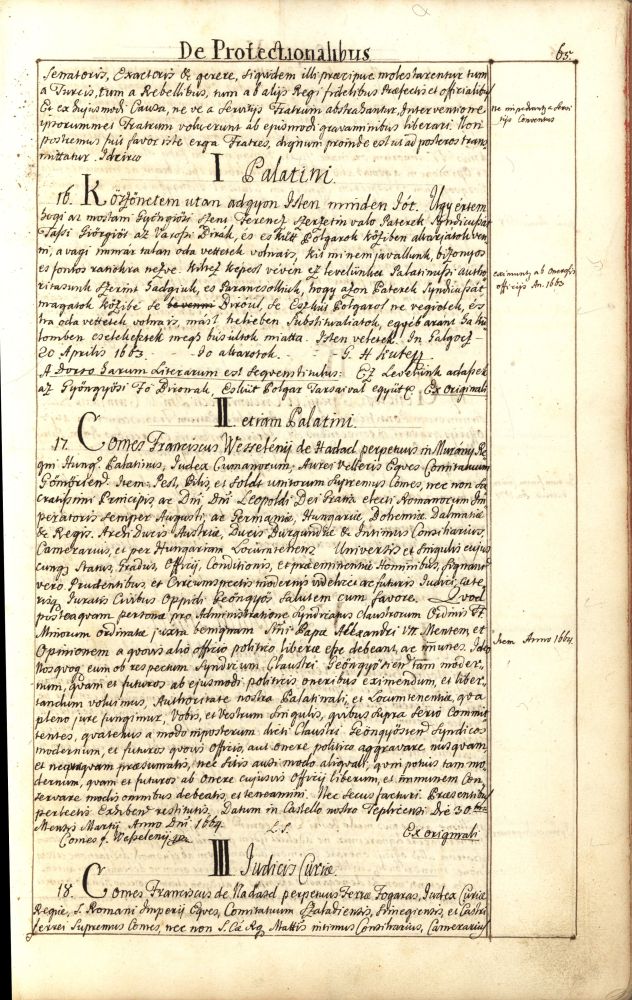 De Protectionalibus
65.
Senatoris, Exactoris &c gerere, siqvidem illi præcipue molestarentur tum
a Turcis, tum a Rebellibus, tum ab alijs Regi fidelibus Præfectis et officialibus
Et ex hujusmodi Causa, ne ve a Servitijs Fratrum abstrahantur, Interventione
ipsorummet Fratrum voluerunt ab ejusmodi gravaminibus liberari. Non
postremus fuit favor iste erga Fratres, dignum proinde est ut ad posteros trans
mittatur. Idcirco
ne impediantur a Servi
tijs Conventus
I Palatini.
16. Köszönetem utan adgyon Isten minden Jót. Ugy értem
hogi az mostani Gyöngiösi Szent Ferencz Szerzetin valo Paterek Syndicussát
Tassi Giörgiöt az Varosi Birák, és eskütt Polgarok köziben akarjátok ven
ni, avagi immár talan oda vettetek volnais, kit mi nem javallunk, bizonyos
es fontos ratiokra nezve. Kihez kepest vévén ez levelünket Palatinussi autho
ritasunk szerint hadgiuk, es Parancsolliuk, hogy azon Paterek Syndicussát
magatok közibé se Biróul, se Esküt Polgarol ne vegiétek, és
ha oda vettétek volnais, mást helieben Substitualiatok, egyéb arant ha bün
tomben eset megh büsültok miatta. Isten vetetek. In Galgocz
20 Aprilis 1663. Jo akarotok. G. H
A Dorso harum Literarum est seqventi titulus: Ez Levelünk adassek
az Gyöngyösi Fö Bironak, Esküt Polgar Tarsaival együt &c Ex Originali
eximuntur ab Oneroſis
officijs An. 1663
II etiam Palatini.
17. Comes Franciscus Wesselényi de Hadad perpetuus in Murany Re
gni Hung. Palatinus, Judex Cumanorum, Aurei Velleris Eqves Comitatuum
Gömöriens. Item Pest, Pilis, et Soldt unitorum Supremus Comes, nec non Sa
cratissimi Principis, ac Dni Dni Leopoldi Dei Gratia electi Romanorum Im
peratoris semper Augusti, ac Germaniæ, Hungariæ, Bohemiæ Dalmatiæ
&c Regis. Archi Ducis Austriæ, Ducis Burgundiæ &c Intimus Consiliarius,
Camerarius, et per Hungariam Locumtenens Universis et Singulis cujus
cunqz Status, Gradus, Officij, Conditionis, et præeminentiæ Hominibus, Signanter
vero Prudentibus, et Circumspectis modernis videlicet ac futuris Judici, cæte
risq Juratis Civibus Oppidi Geöngyös Salutem cum favore. Quod
posteaqvam personæ pro Administratione Syndicatus Claustrorum Ordinis St
Minorum Ordinatæ juxta benignam Ssmi Papæ Alexandri VII. Mentem, et
Opinionem a qvovis alio officio politico liberiæ esse debeant, ac immunes. Ideo
Nosqvoq eum ob respectum Syndicum Claustri Geöngyösiens tam moder,
num, qvam et futuros ab ejusmodi politicis oneribus eximendum, et liber,
tandum volumus, Authoritate nostra Palatinali, et Locumtenentiæ, qva a
pleno jure fungimur, Vobis, et Vestrum Singulis, qvibus supra serio Commit
tentes, qvatenus a modo imposterum dicti Claustri Geöngyösiens Syndicos
modernum, et futuros qvovis Officio, aut Onere politico aggravare nusqvam
et neqvaqvam præsumatis, nec sitis ausi modo aliqvali, qvin potius tam mo,
dernum, qvam et futuros ab Onere cujusvis Officij liberum, et immunem Con
servare modis omnibus debeatis, et teneamini. Nec secus facturi. Præsentibus
perlectis Exhibenti restitutis. Datum in Castello nostro Teplicensi Die 30 bris
Mensis Martij Anno Dni 1664.
Comes f. Wesselenij mp.
L. S.
Ex originali
Item Anno 1664.
III Judicis Curiæ
18. Comes Franciscus de Nadasd perpetuus Terræ Fogaras, Judex Curiæ
Regiæ, S. Romani Imperij Eqves, Comitatuum Szaladiensis, Simegiensis, et Castri
ferrei Supremus Comes, nec non S. Cæ Rq Mattis intimus Consiliarius, Camerarius